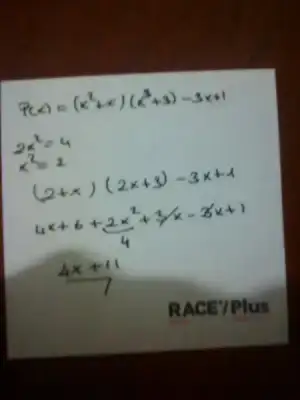 P(x) = (x²+x)(x³+3) -3x+1
2x² = 4
x² = 2
(2+x) (2x+3) -3x+1
4x+6+2x²+3x-3x+1
4
4x+11
RACE/Plus